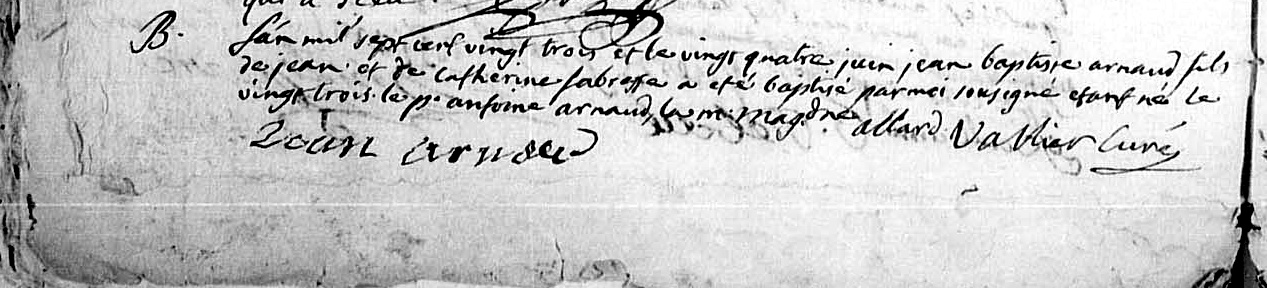 B. l'an mil sept cent vingt trois et le vingt quatre juin jean baptiste arnaud fils
de jean et de Catherine sabresse a eté baptisé par moi sousigné etant né le
vingt trois. le p. antoine arnaud, la m. magdne allard Vallier Curé
Jean arnaud